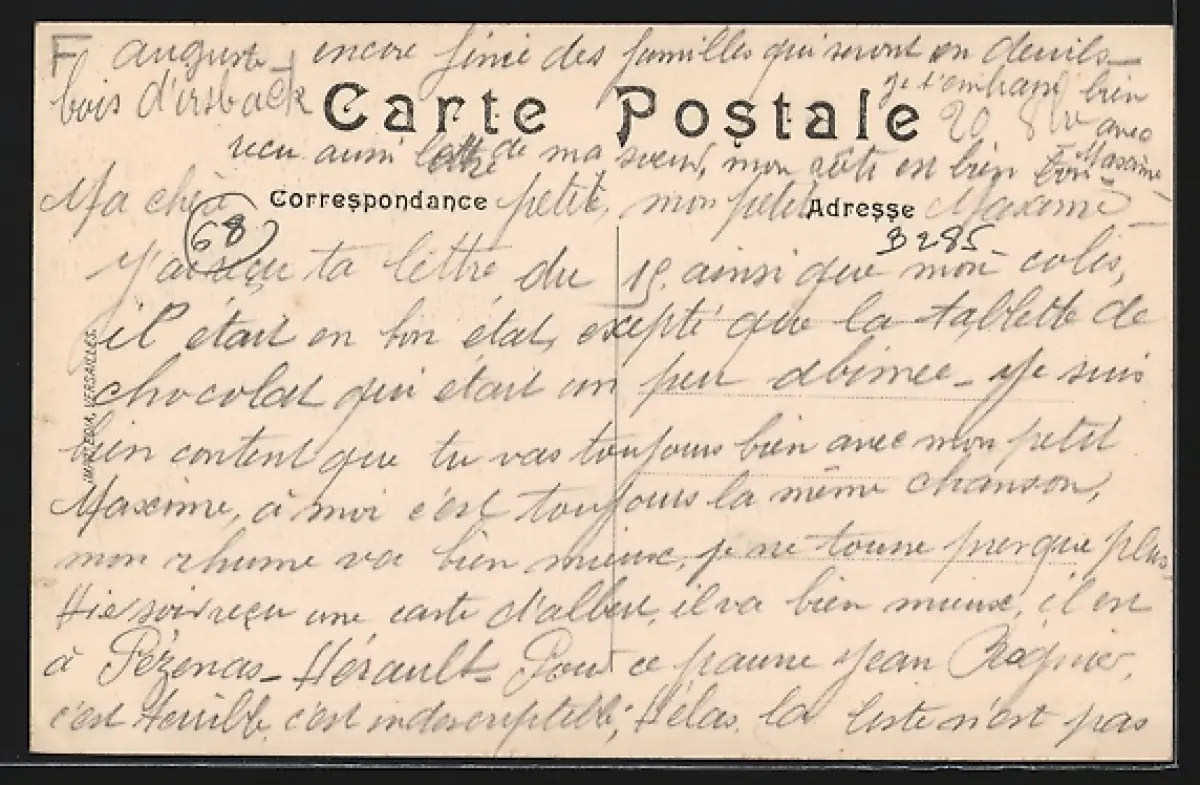 F August
bois d'irsback
encore finie des familles qui seront en deuils
je t'embrasse bien
20 avec
Maxime
Carte Postale
reçu aussi lettre de ma sœur, mon rôti est bien bon
Correspondance
Adresse
Ma chère petite, mon petit Maxime
68
B285
J'ai reçu ta lettre du 19. ainsi que mon colis,
il était en bon état, exepté que la tablette de
chocolat qui était un peu abimée - Je suis
bien content que tu vas toujours bien avec mon petit
Maxime, à moi c'est toujours la même chanson,
mon rhume va bien mieux, je ne tousse presque plus -
Hier soir reçu une carte d'albert, il va bien mieux, il est
à Pézenas - Hérault - Pour ce pauvre Jean Régnier,
c'est terrible, c'est indescriptible; Hélas, la liste n'est pas
IMP. EDIA, VERSAILLES.